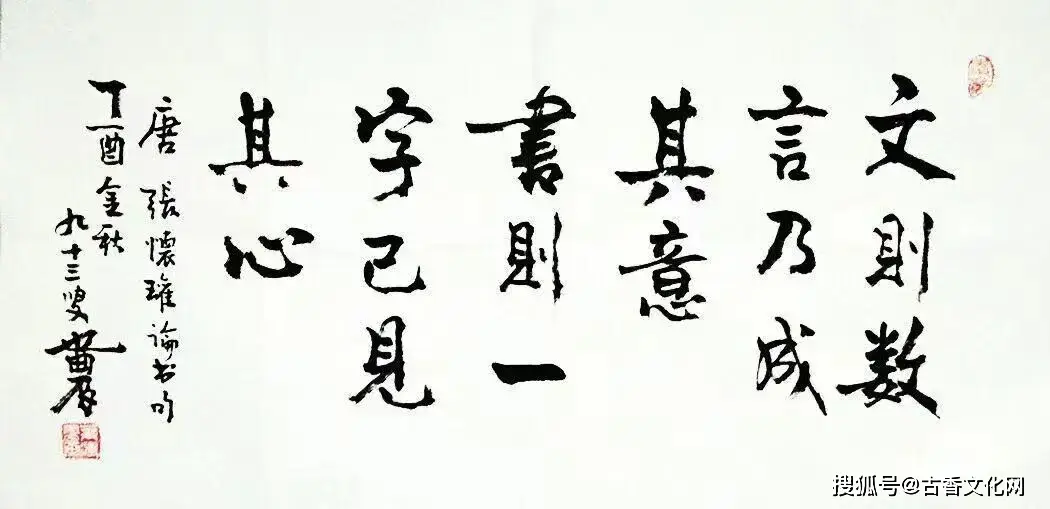 文則数
言乃成
其意
書則一
字已見
其心
唐 張懷瓘論书句
丁酉金秋
九十三叟
搜狐号@古香文化网